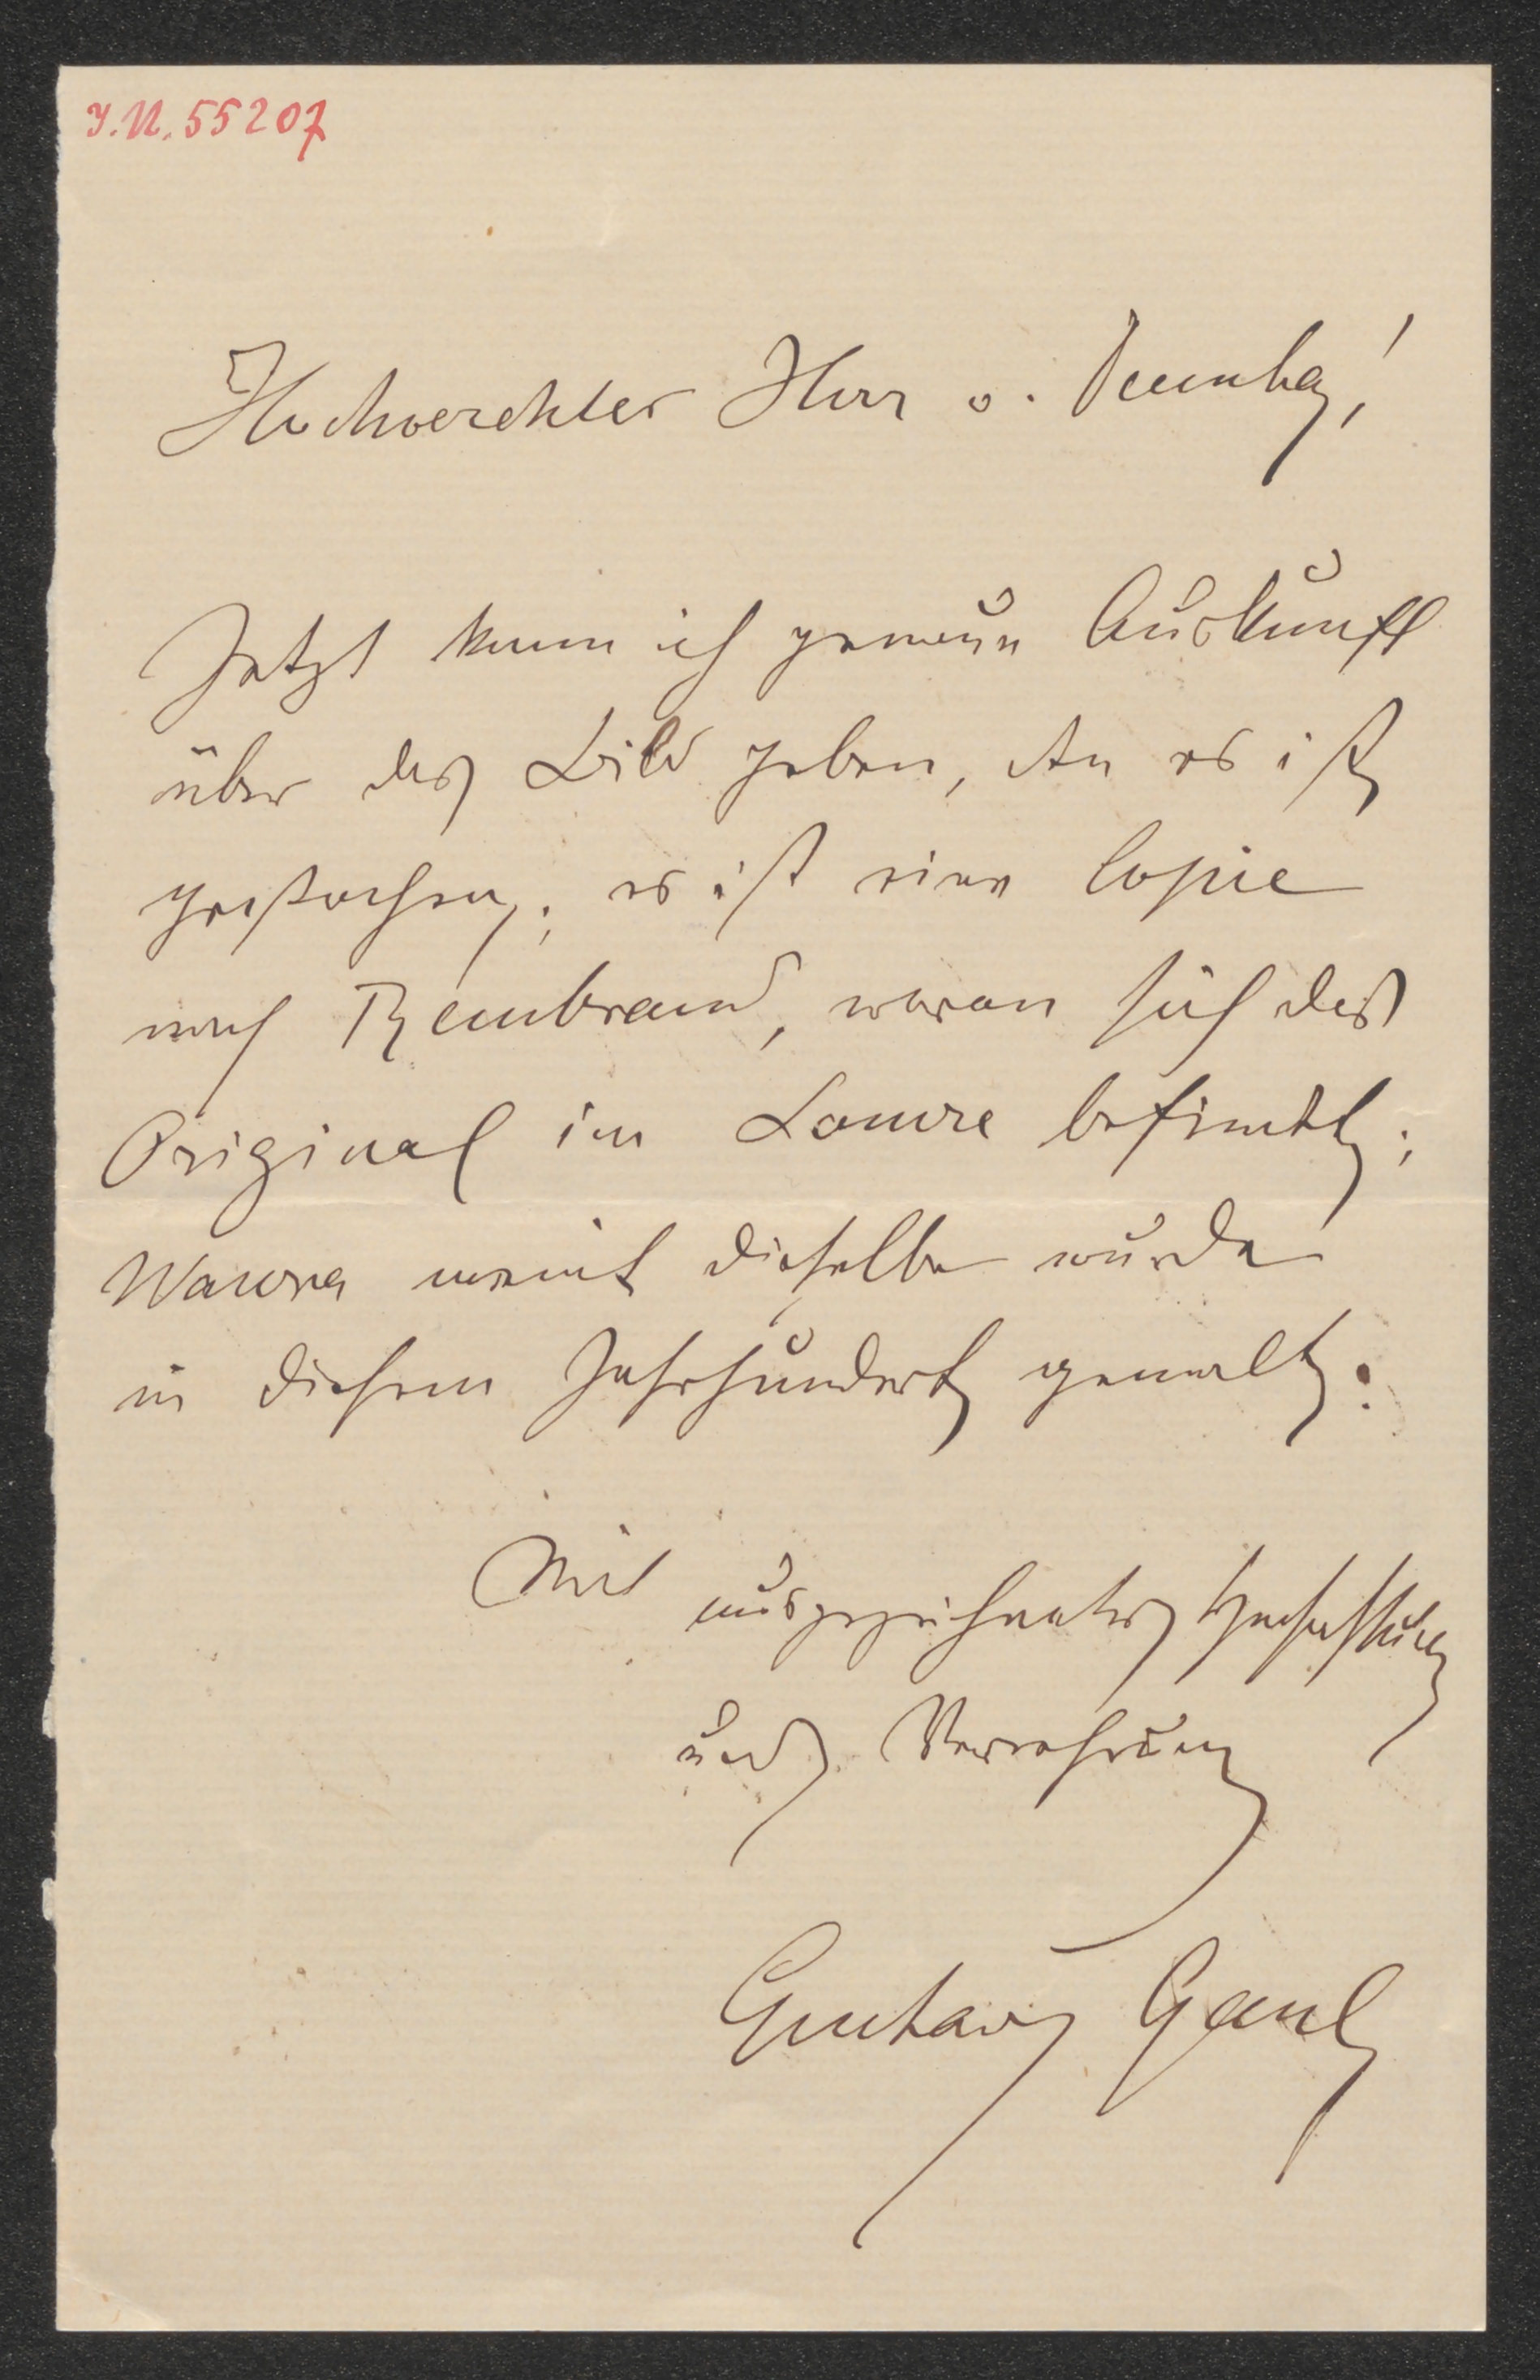 J.N. 55207
Hochverehrter Herr v.
Jetzt kann ich genaue Auskunft
über das Bild geben, da es ist
gestochen; es ist eine Copie
nach Rembrand, wovon sich das
Original im Louvre befindet;
Wawra meint dieselbe wurde
in diesem Jahrhundert gemalt.
Mit ausgezeichneter Hochachtung
und Verehrung
Gustav Gaul